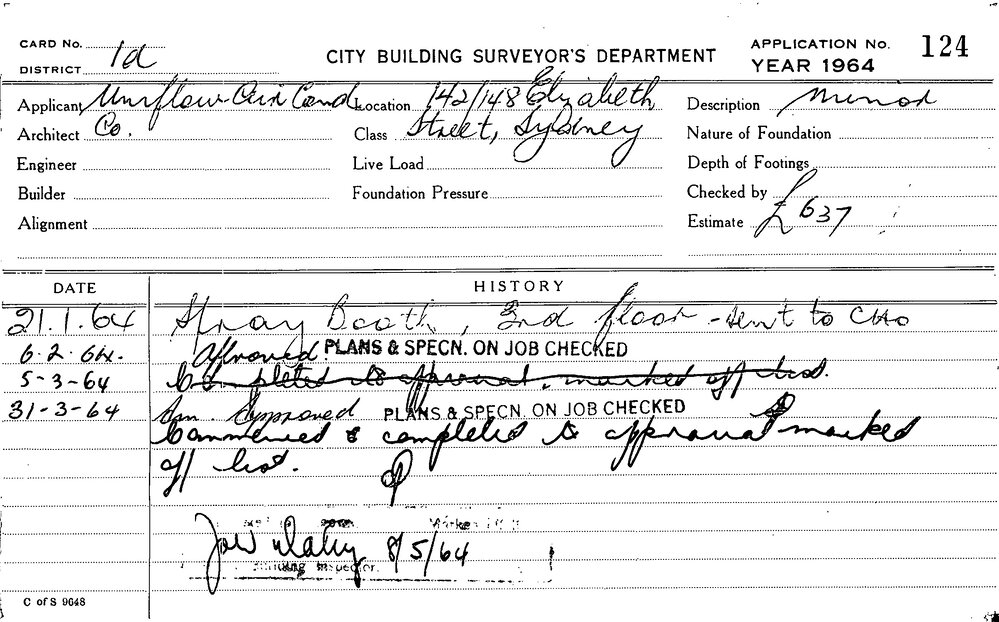 CARD No. 1d
DISTRICT
CITY BUILDING SURVEYOR'S DEPARTMENT
APPLICATION No. 124
YEAR 1964
Applicant Uniflow Air Cond Location 142/148 Elizabeth Description minor
Architect Co. Class Street, Sydney Nature of Foundation
Engineer Live Load Depth of Footings
Builder Foundation Pressure Checked by
Alignment Estimate £637
DATE HISTORY
21.1.64 Spray Booth, 3rd floor - sent to
6.2.64. Approved. PLANS & SPECN. ON JOB CHECKED
5-3-64 Completed to approval, marked off list.
31-3-64 Am. Approved PLANS & SPECN. ON JOB CHECKED
Commenced & completed to approval marked
off list.
8/5/64
Building Inspector.
C of S 9648